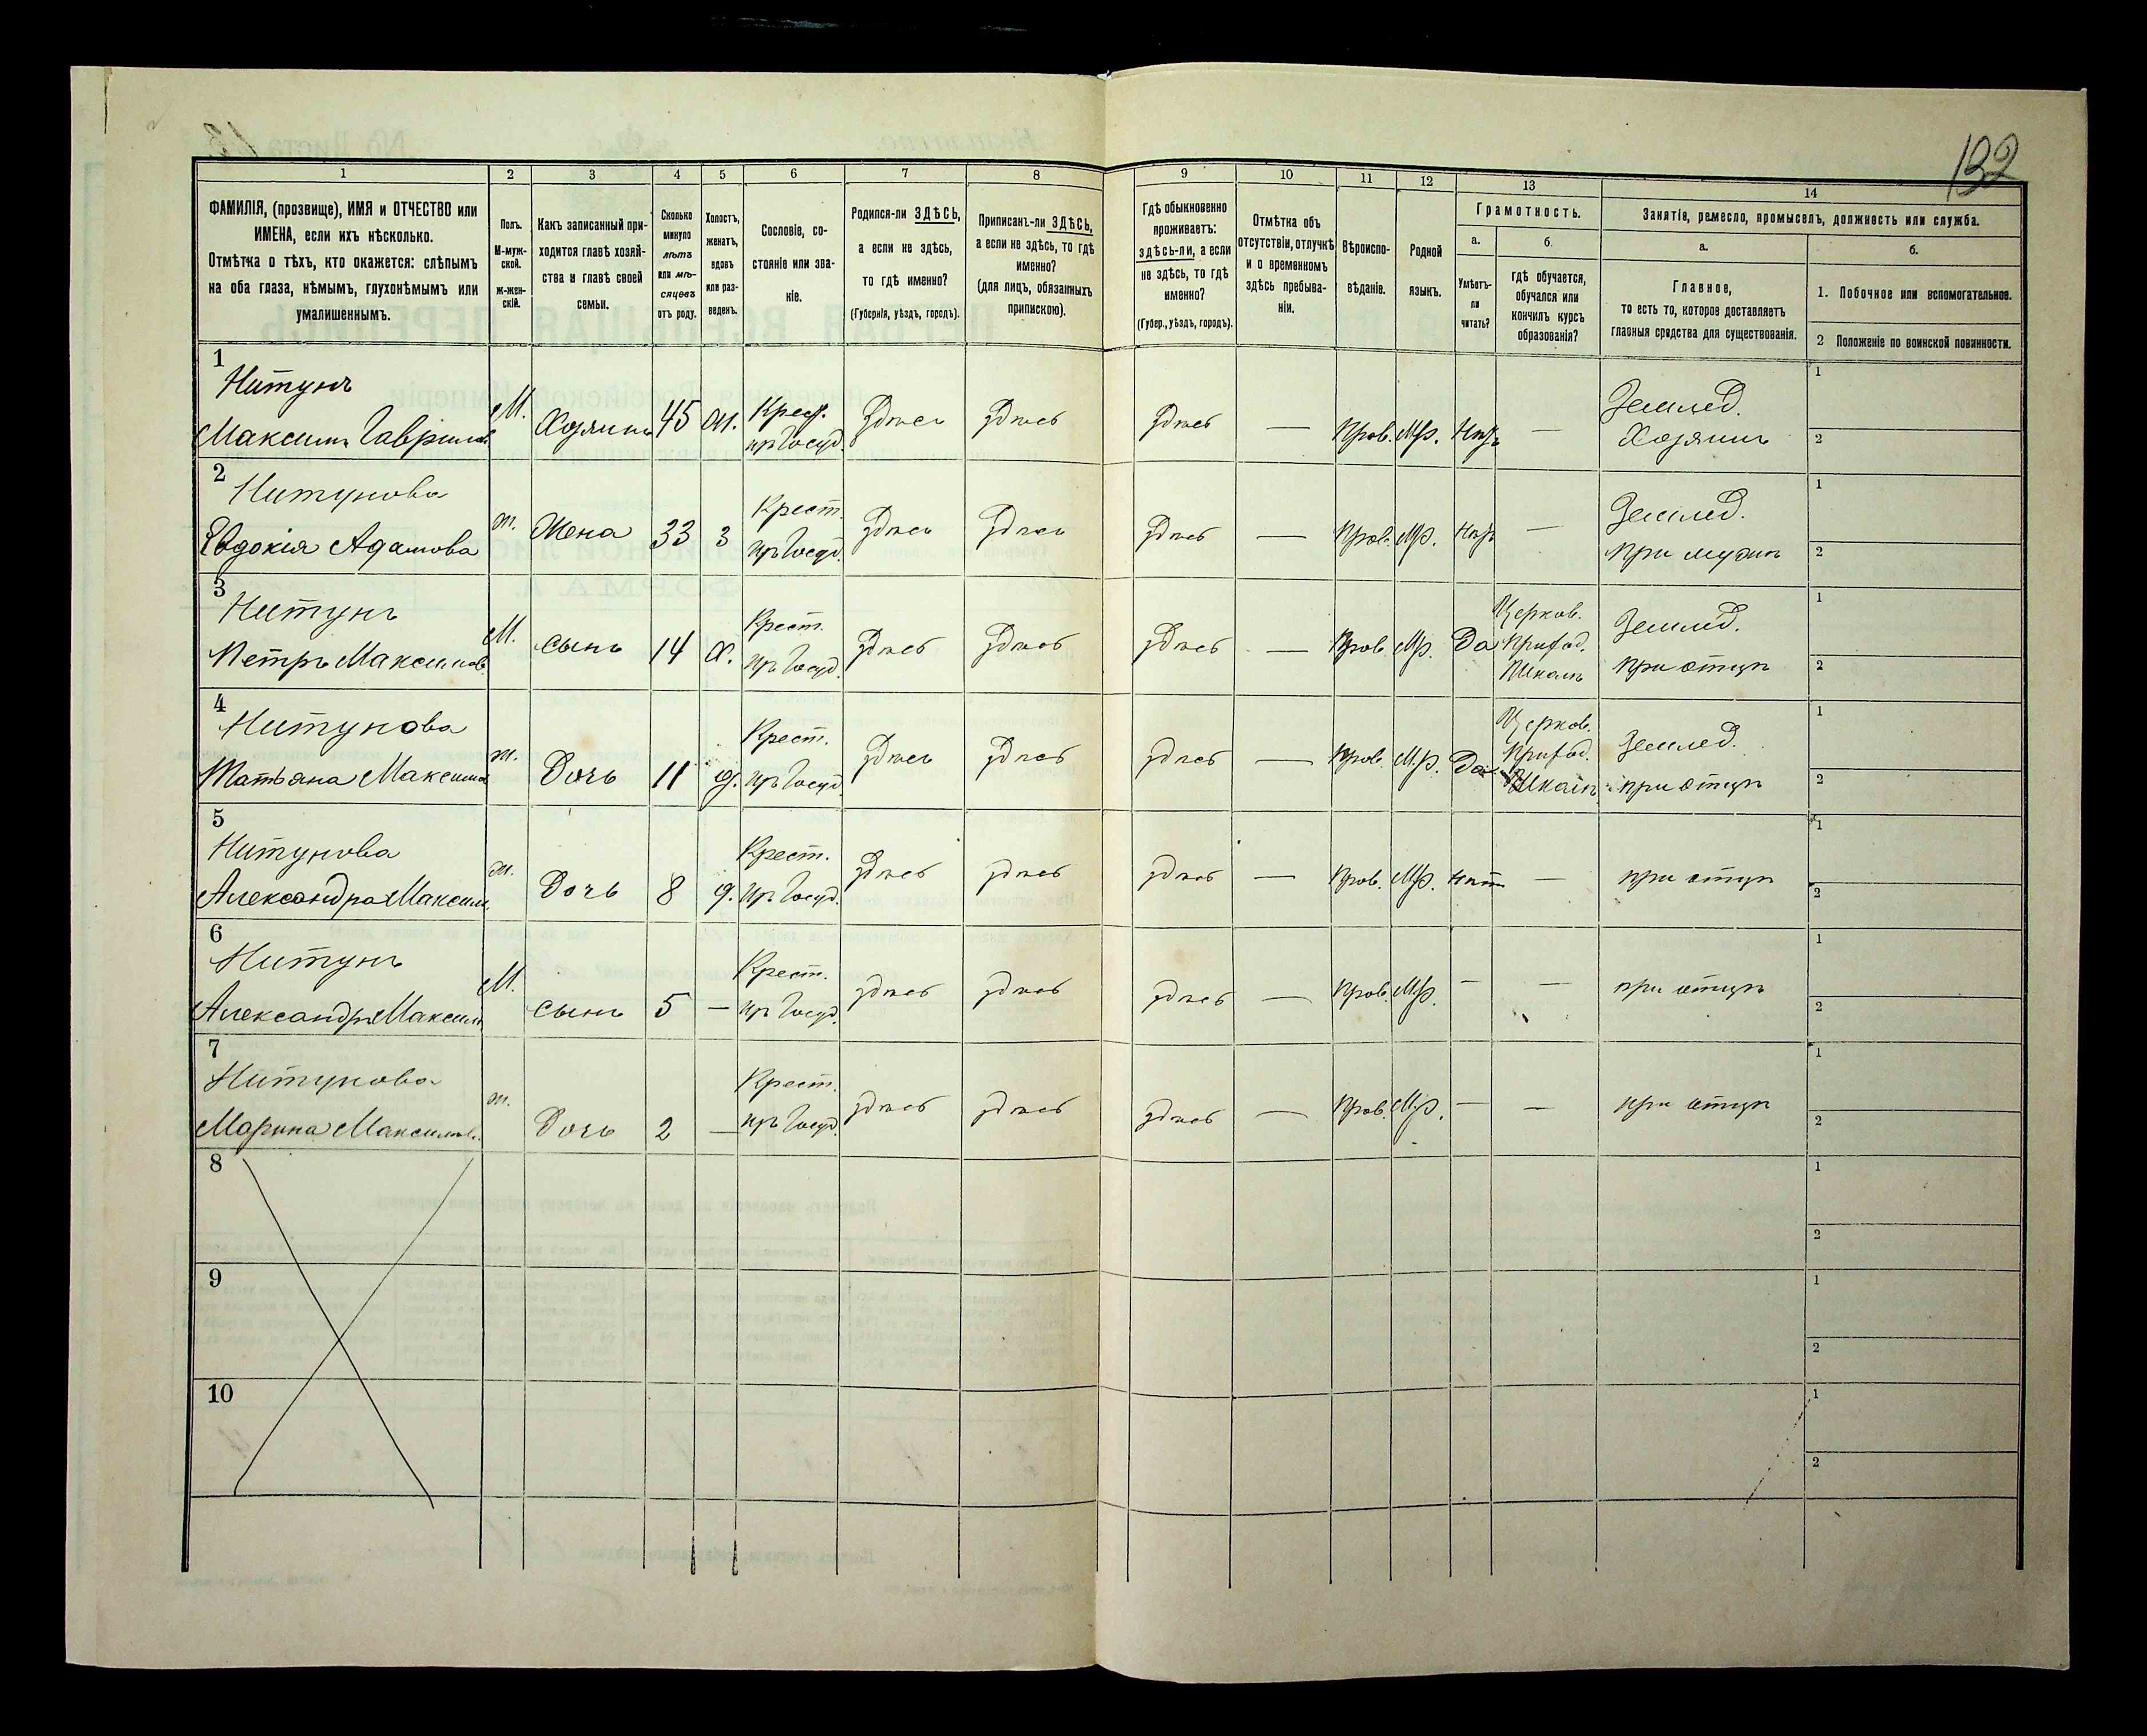 132
1 2 3 4 5 6 7 8 9 10 11 12 13 14
ФАМИЛІЯ, (прозвище), ИМЯ и ОТЧЕСТВО или
ИМЕНА, если ихъ нѣсколько.
Отмѣтка о тѣхъ, кто окажется: слѣпымъ
на оба глаза, нѣмымъ, глухонѣмымъ или
умалишеннымъ.
Полъ.
М-муж-
ской.
ж-жен-
скій.
Какъ записанный при-
ходится главѣ хозяй-
ства и главѣ своей
семьи.
Сколько
минуло
лѣтъ
или мѣ-
сяцевъ
отъ роду.
Холостъ,
женатъ,
вдовъ
или раз-
веденъ.
Сословіе, со-
стояніе или зва-
ніе.
Родился-ли ЗДѢСЬ,
а если не здѣсь,
то гдѣ именно?
(Губернія, уѣздъ, городъ).
Приписанъ-ли ЗДѢСЬ,
а если не здѣсь, то гдѣ
именно?
(для лицъ, обязанныхъ
припискою).
Гдѣ обыкновенно
проживаетъ:
здѣсь-ли, а если
не здѣсь, то гдѣ
именно?
(Губер., уѣздъ, городъ).
Отмѣтка объ
отсутствіи, отлучкѣ
и о временномъ
здѣсь пребыва-
ніи.
Вѣроиспо-
вѣданіе.
Родной
языкъ.
Грамотность.
а.
Умѣетъ-
ли
читать?
б.
гдѣ обучается,
обучался или
кончилъ курсъ
образованія?
Занятіе, ремесло, промыселъ, должность или служба.
а.
Главное,
то есть то, которое доставляетъ
главныя средства для существованія.
б.
1. Побочное или вспомогательное.
2 Положеніе по воинской повинности.
1
Нитунъ
Максимъ Гаврилов
М.
Хозяинъ
45
Крест.
Здѣсь
Здѣсь
Здѣсь
—
Прав.
—
Землед.
Хозяинъ
1
2
2
Нитунова
Евдокія Адамова
ж.
Жена
33
З
Крест.
Здѣсь
Здѣсь
Здѣсь
—
Прав.
—
Землед.
при мужѣ
1
2
3
Нитунъ
Петръ Максимов
М.
сынъ
14
Х.
Крест.
Здѣсь
Здѣсь
Здѣсь
—
Прав.
Да
Церков.
Приход.
Школѣ
Землед.
при отцѣ
1
2
4
Нитунова
Татьяна Максимов
ж.
Дочь
11
д.
Крест.
Здѣсь
Здѣсь
здѣсь
—
Прав.
Да
Церков.
Приход.
Школѣ
Землед.
при отцѣ
1
2
5
Нитунова
Александра Максим.
ж.
Дочь
8
д.
Крест.
Здѣсь
здѣсь
здѣсь
—
Прав.
нѣт
—
при отцѣ
1
2
6
Нитунъ
Александръ Максим
М.
сынъ
5
—
Крест.
здѣсь
здѣсь
здѣсь
—
Прав.
—
—
при отцѣ
1
2
7
Нитунова
Марина Максимов.
ж.
Дочь
2
—
Крест.
здѣсь
здѣсь
здѣсь
—
Прав.
—
—
при отцѣ
1
2
8
1
2
9
1
2
10
1
2